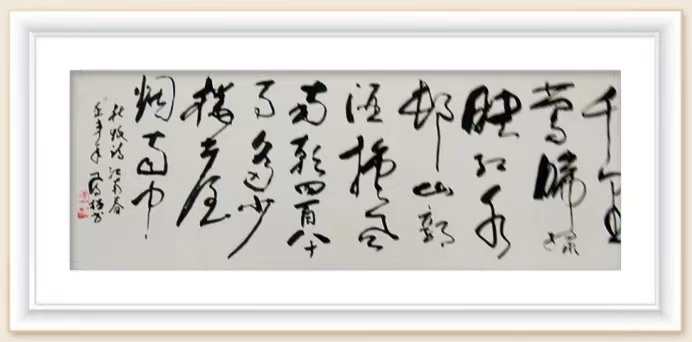 千里
莺啼绿
映红水
邨山郭
酒旗风
南朝四百八十
寺多少
楼台
烟雨中
杜牧诗江南春